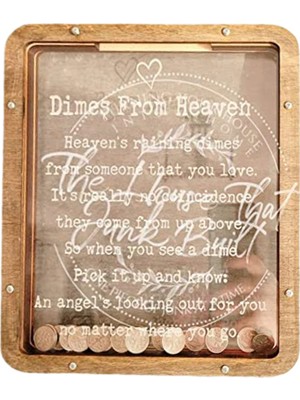 Dimes From Heaven
Heaven's raining dimes
from someone that you love.
It's really no coincidence
they come from up above.
So when you see a dime
Pick it up and know:
An angel's looking out for you
no matter where you go
The House That
Built